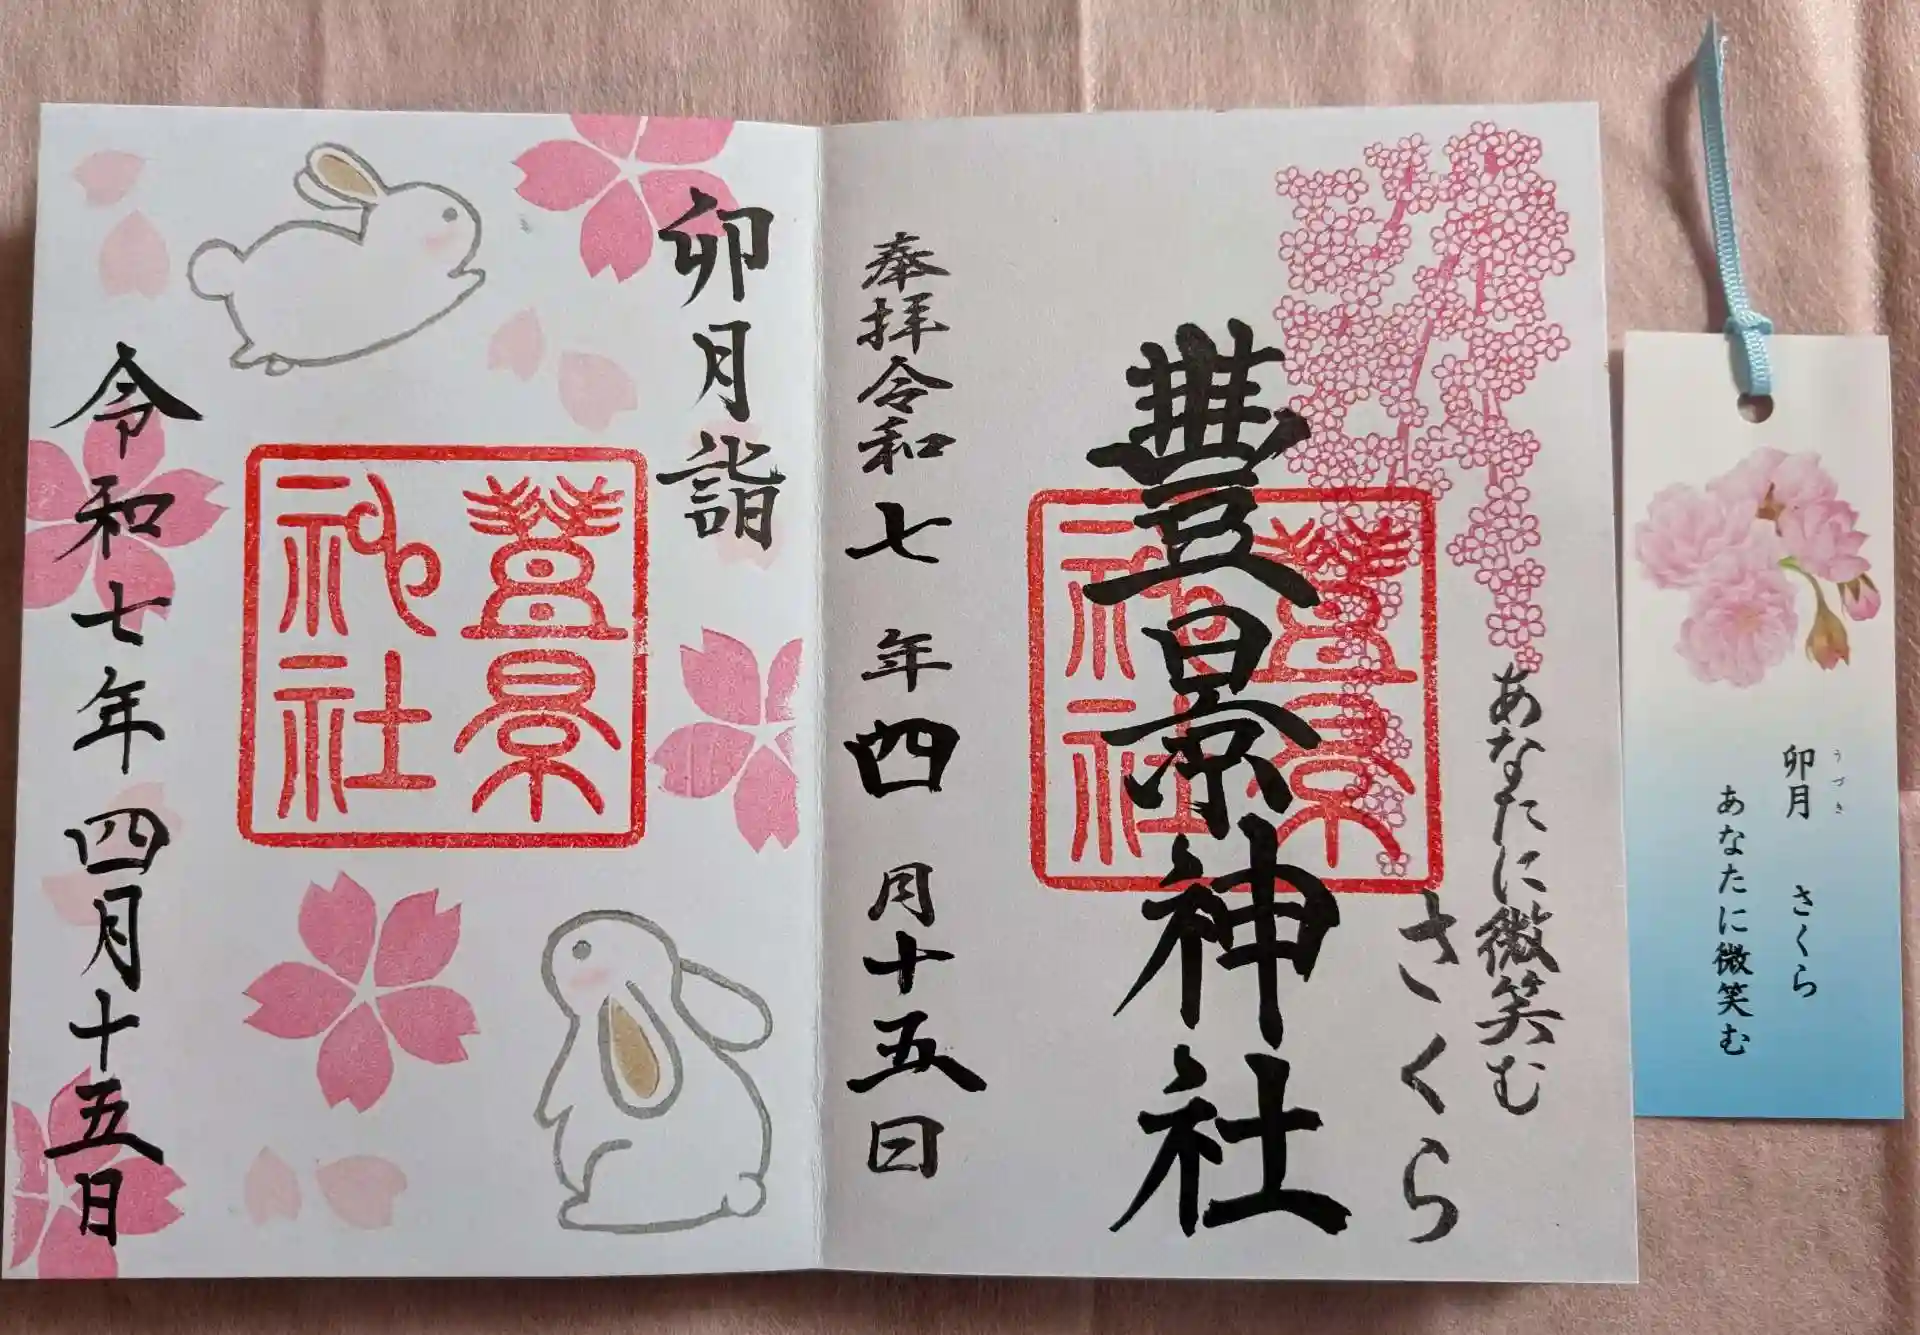 あなたに微笑む
さくら
豐景神社
豐景
神社
奉拝令和七年四月十五日
卯月詣
豐景
神社
令和七年四月十五日
卯月 さくら
うづき
あなたに微笑む